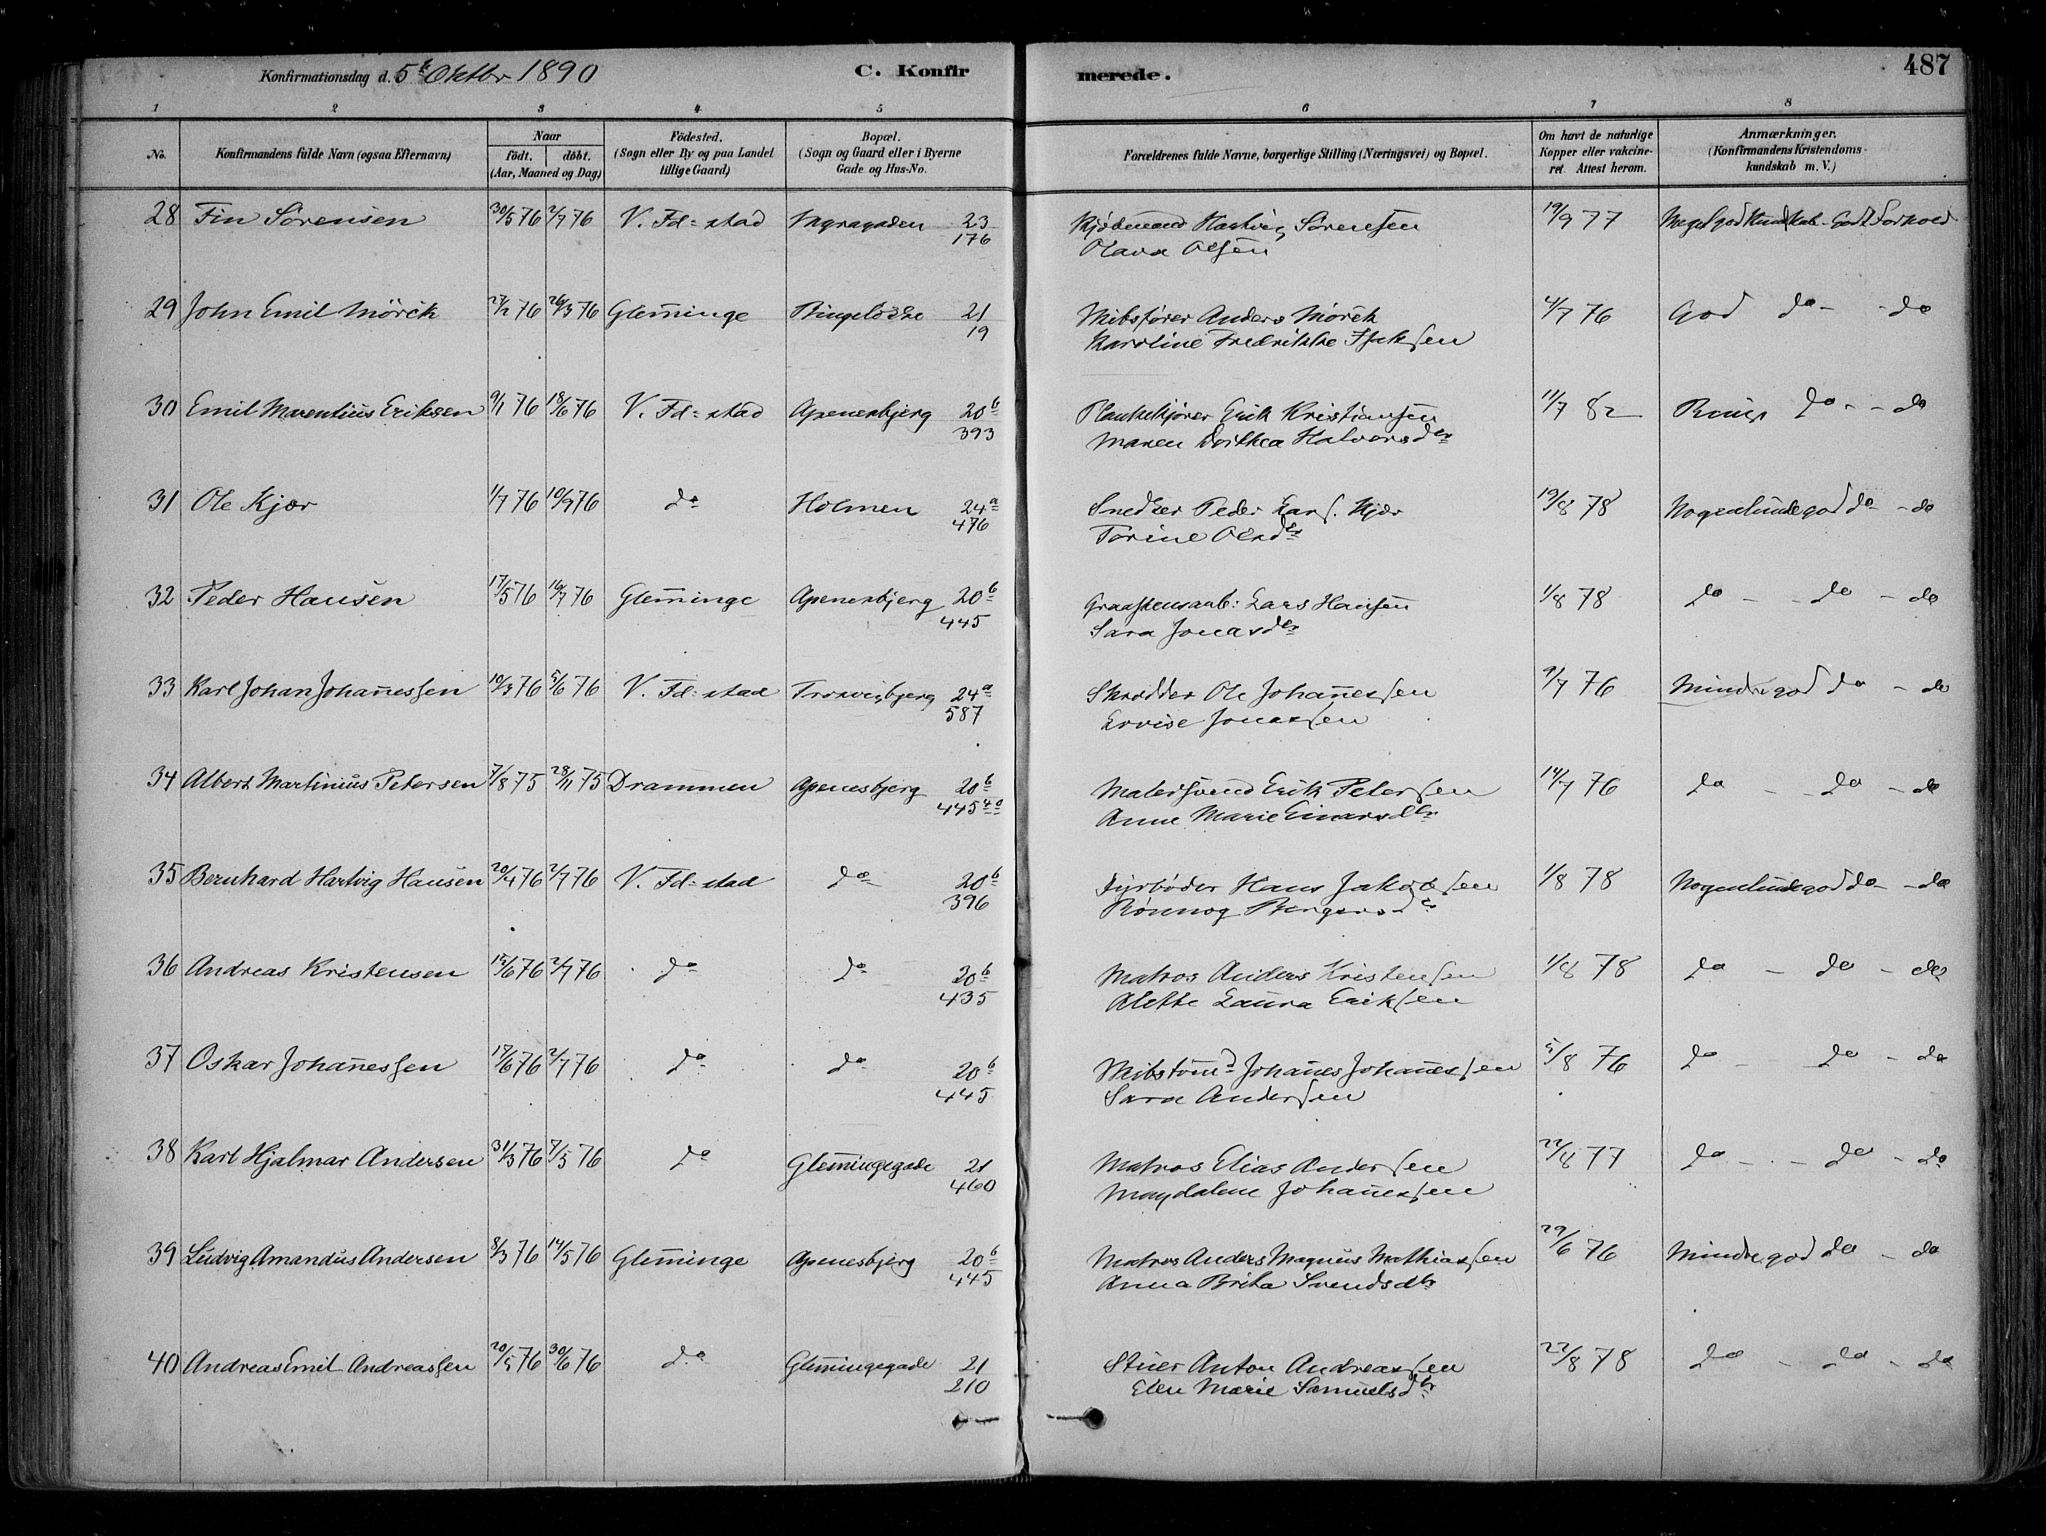 Konfirmationsdag d. 5t Oktbr 1890 C. Konfirmerede. 487
1 2 3 4 5 6 7 8
No. Konfirmandens fulde Navn (ogsaa Efternavn) Naar födt. döbt. (Aar, Maaned og Dag) Födested. (Sogn eller By og paa Landet tillige Gaard) Bopæl. (Sogn og Gaard eller i Byerne Gade og Hus-No. Forældrenes fulde Navne, borgerlige Stilling (Næringsvei) og Bopæl. Om havt de naturlige Kopper eller vakcineret. Attest herom. Anmærkninger. (Konfirmandens Kristendomskundskab m. V.)
28 Fin Sörensen 30/5 76 2/7 76 V. Fd=stad 23 Hartvig Sörensen 19/9 77 Meget god Kundskab - Godt Forhold
176 Olava Olsen
29 John Emil Mörck 27/1 76 26/3 76 Gleminge 21 Anders Mörck 4/7 76 God do - do
19 Karoline Fredrikke Isaksen
30 Emil Marentius Eriksen 9/1 76 18/6 76 V. Fd=stad Apenesbjerg 20b Plankekjörer Erik Kristiansen 11/7 82 do - do
393 Maren Dorthea Halvorsdtr
31 Ole Kjær 1/7 76 10/9 76 do Holmen 24a Snedker Peder Lars. Kjær 19/8 78 Nogenlunde god do - do
476 Torine Olsdtr
32 Peder Hansen 17/5 76 16/7 76 Gleminge Apenesbjerg 20b Graastensarb: Lars Hansen 1/8 78 do - do - do
445 Sara Jonasdtr
33 Karl Johan Johanessen 10/3 76 5/6 76 V. Fd=stad Trosvigbjerg 24a Skrædder Ole Johanessen 9/7 76 Mindre god do - do
587 Lovise Jonassen
34 Albert Martinius Petersen 7/8 75 28/11 75 Drammen Apenesbjerg 20b Malersvend Erik Petersen 14/7 76 do - do - do
445 Anne Marie Einarsdtr
35 Bernhard Hartvig Hansen 20/4 76 2/7 76 V. Fd=stad do 20b Fyrböder Hans Jakobsen 1/8 78 Nogenlunde god do - do
396 Rönnog Birgersdtr
36 Andreas Kristensen 15/6 76 2/7 76 do do 20b Matros Anders Kristensen 1/8 78 do - do - do
435 Alette Laura Eriksen
37 Oskar Johanessen 17/6 76 2/7 76 do do 20b Skibstömd Johanes Johanessen 5/8 76 do - do - do
445 Sara Andersen
38 Karl Hjalmar Andersen 31/3 76 7/5 76 do Glemingegade 21 Matros Elias Andersen 22/8 77 do - do - do
460 Magdalene Johanessen
39 Ludvig Amandus Andersen 8/3 76 14/5 76 Gleminge Apenesbjerg 20b Matros Anders Magnus Mathiassen 29/6 76 Mindre god do - do
445 Anna Brita Svendsdtr
40 Andreas Emil Andreassen 20/5 76 30/6 76 do Glemingegade 21 Stuer Anton Andreassen 22/8 78 do - do - do
210 Elen Marie Samuelsdtr